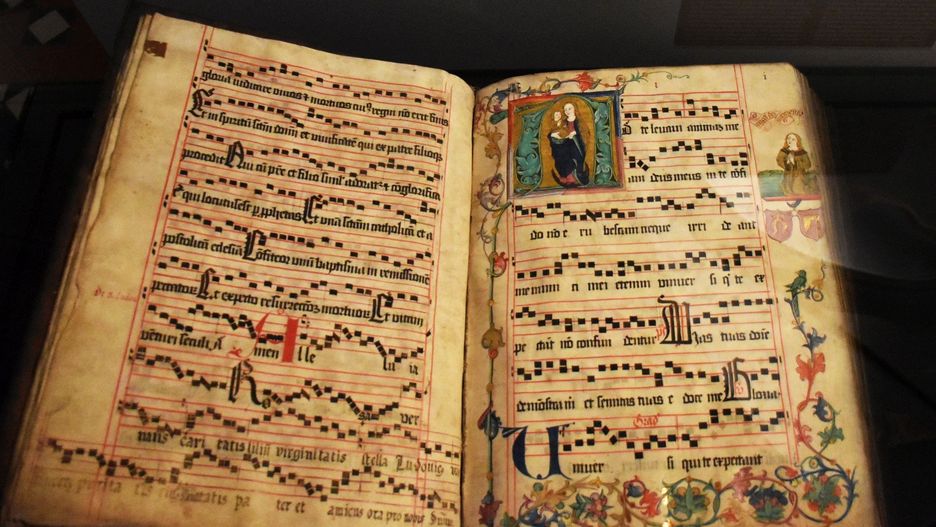 gloria iudicare vivos & mortuos cuiꝰ regni nō erit finis
Et in spiritū sctm̄ dom̄ et vivificātē qui ex patre filioq̄
procedit Qui cū pr̄e et filio simul adorat᷑ & cōglorifica
qui locutus est ꝑ ꝓphetas Et unā sctām catholicā et a
postolicā ecclesiā Confiteor unū baptisma in remissionē
peccatorꝝ Et expecto resurrectōe mortuorꝝ Et vitam
venturi seculi A men Alle lu ia
Ro sa ver
nans cari tatis liliū virginitatis stella Ludovig
ter et amicus ora pro nobis
D te levavi animas me
am deus meus in te cōfi
do nō e ru bescam neque irri de ant
me inimi ci mei etenim univer si q̇ te ex
pe ctāt nō confun dentur ps Vias tuas dn̄e
demōstra m̄ et semitas tuas e doce me Gloria
Grad
Univer si qui te expectant